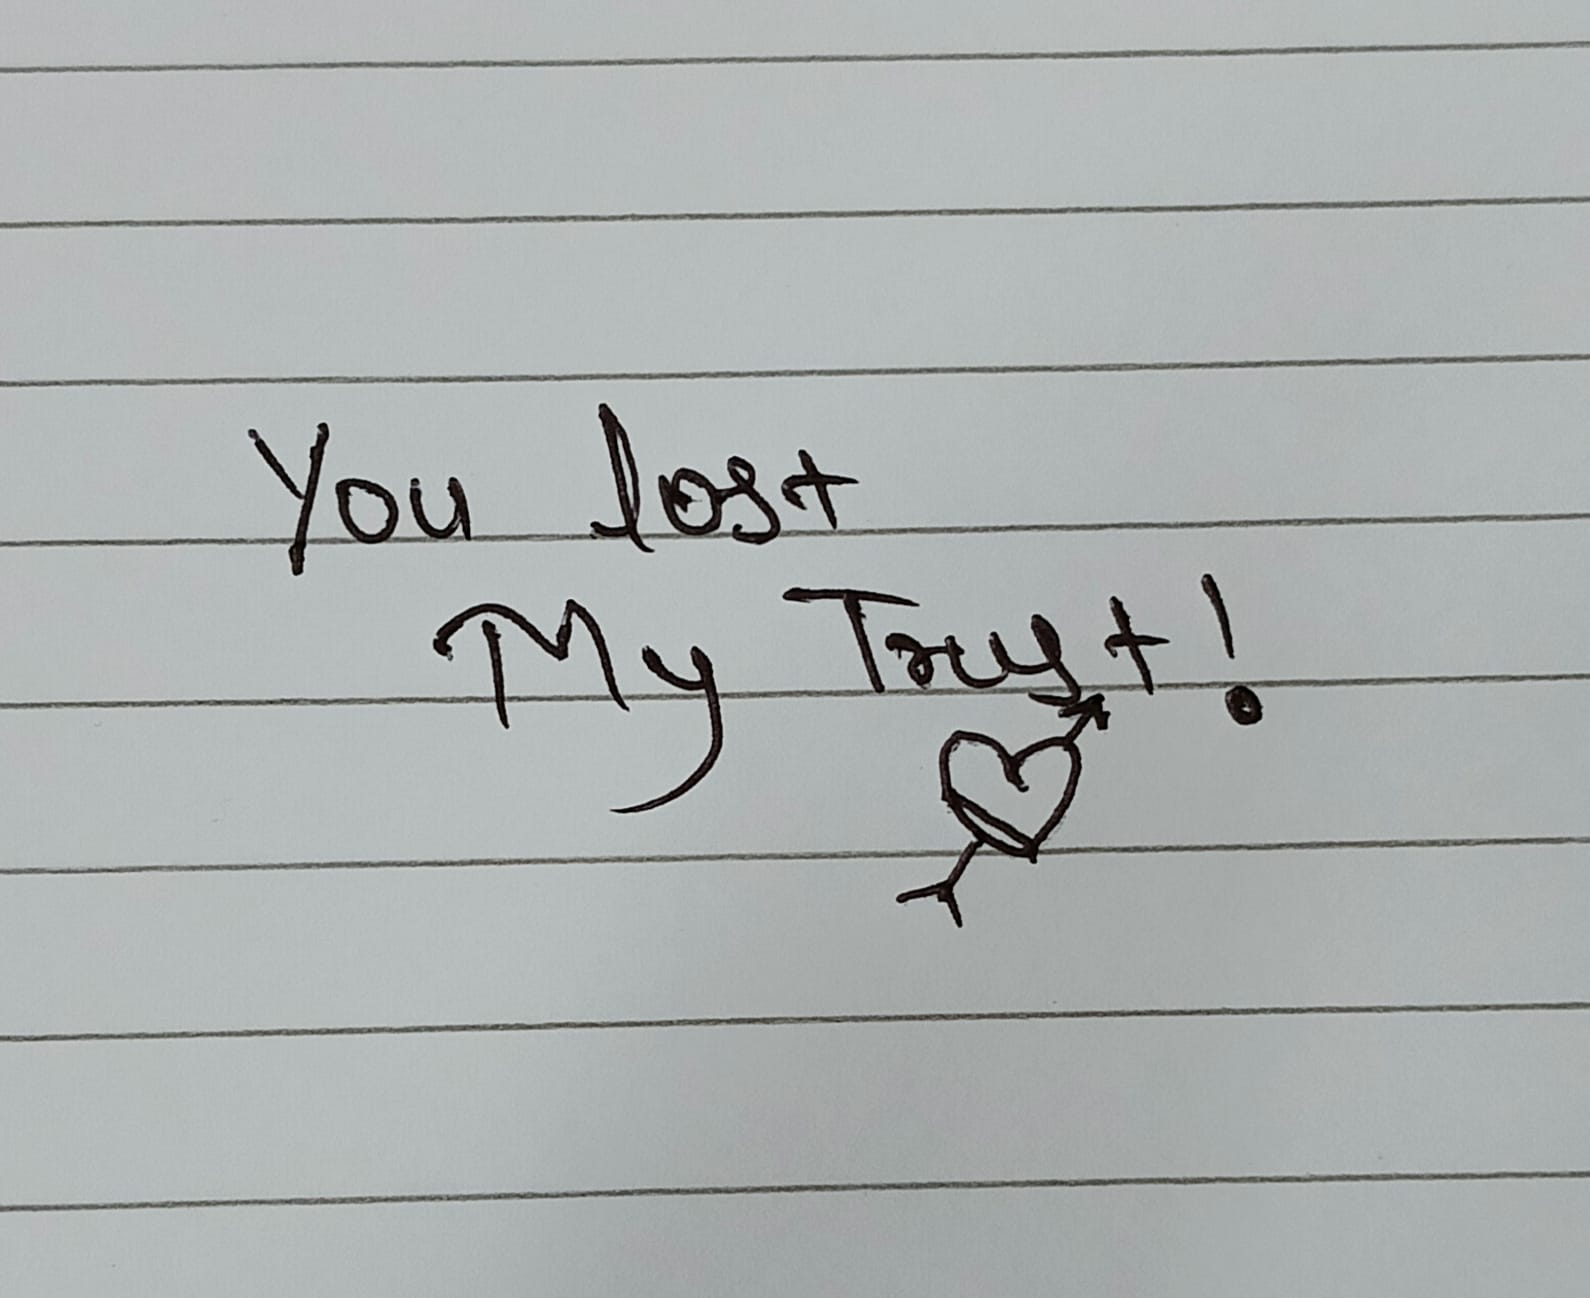 You lost
My Trust!